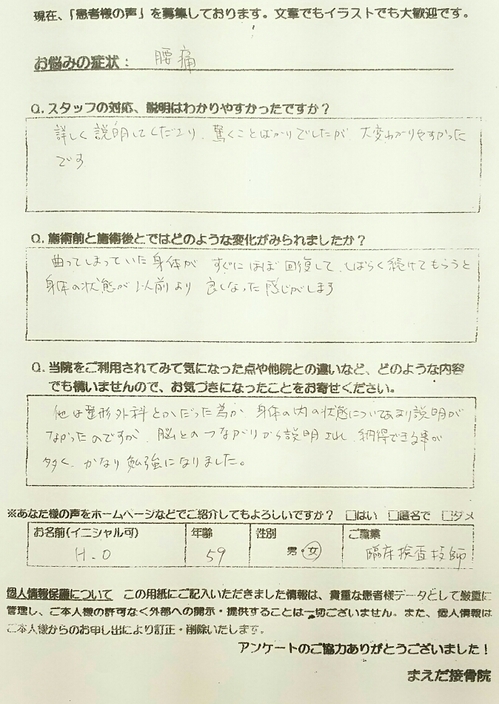 現在、「患者様の声」を募集しております。文章でもイラストでも大歓迎です。
お悩みの症状： 腰痛
Q. スタッフの対応、説明はわかりやすかったですか？
詳しく説明してくださり、驚くことばかりでしたが、大変わかりやすかった
です
Q. 施術前と施術後とではどのような変化がみられましたか？
曲ってしまっていた身体が すぐにほぼ回復して、しばらく続けてもらうと
身体の状態が以前より 良くなった感じがします
Q. 当院をご利用されてみて気になった点や他院との違いなど、どのような内容
でも構いませんので、お気づきになったことをお寄せください。
他は整形外科とかだった為か 身体の内の状態についてあまり説明が
なかったのですが、脳とのつながりから説明され、納得できる事が
多く、かなり勉強になりました。
※あなた様の声をホームページなどでご紹介してもよろしいですか？ □はい □匿名で □ダメ
お名前(イニシャル可) 年齢 性別 ご職業
H.O 59 男・女 臨床検査技師
個人情報保護について この用紙にご記入いただきました情報は、貴重な患者様データとして厳重に
管理し、ご本人様の許可なく外部への開示・提供することは一切ございません。また、個人情報は
ご本人様からのお申し出により訂正・削除いたします。
アンケートのご協力ありがとうございました！
まえだ接骨院